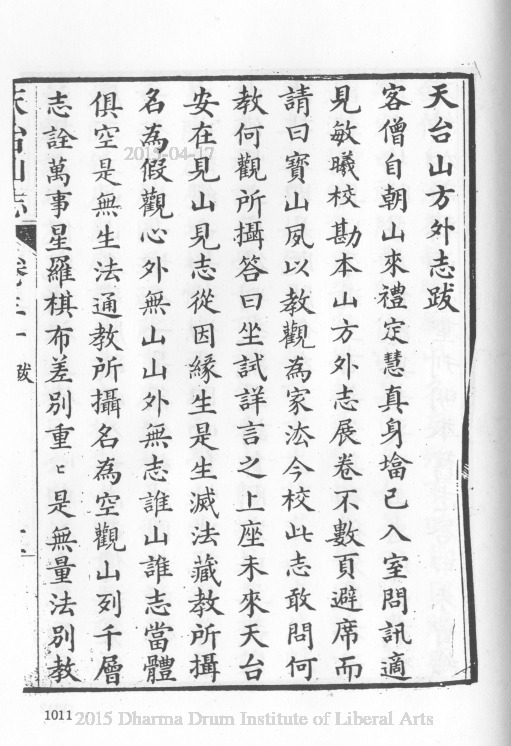 天台山方外志跋
客僧自朝山來禮定慧真身塔已入室問訊適
見敏曦校勘本山方外志展卷不數頁避席而
請曰寶山夙以教觀為家法今校此志敢問何
教何觀所攝答曰坐試詳言之上座未來天台
安在見山見志從因緣生是生滅法藏教所攝
名為假觀心外無山山外無志誰山誰志當體
俱空是無生法通教所攝名為空觀山列千層
志詮萬事星羅棋布差別重ヒ是無量法別教
天台山志 卷三十 跋
2015-04-17
1011 2015 Dharma Drum Institute of Liberal Arts